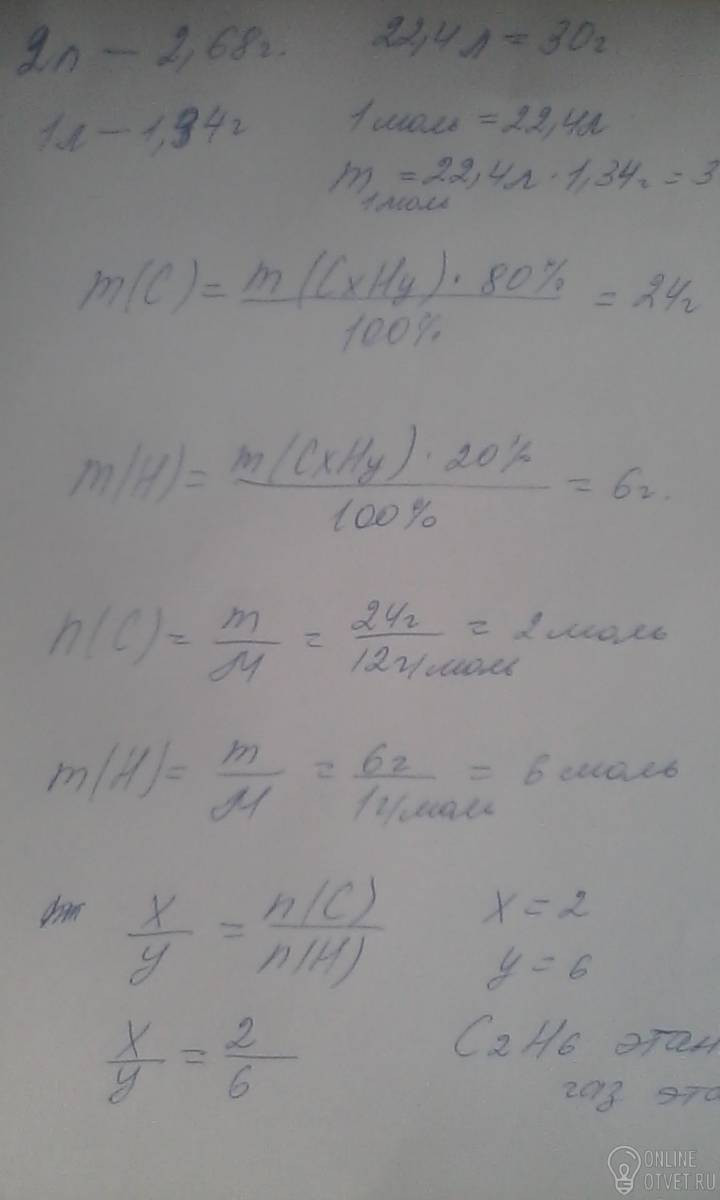 2л — 2,68г. 22,4л = 30г
1л — 1,34г 1 моль = 22,4л
m 1моль = 22,4л · 1,34г = 3
m(C) = m(CxHy) · 80% / 100% = 24г
m(H) = m(CxHy) · 20% / 100% = 6г.
n(C) = m / M = 24г / 12г/моль = 2 моль
m(H) = m / M = 6г / 1г/моль = 6 моль
x / y = n(C) / n(H) x = 2
y = 6
x / y = 2 / 6 C2H6 этан
газ эта
ONLINE
OTVET.RU